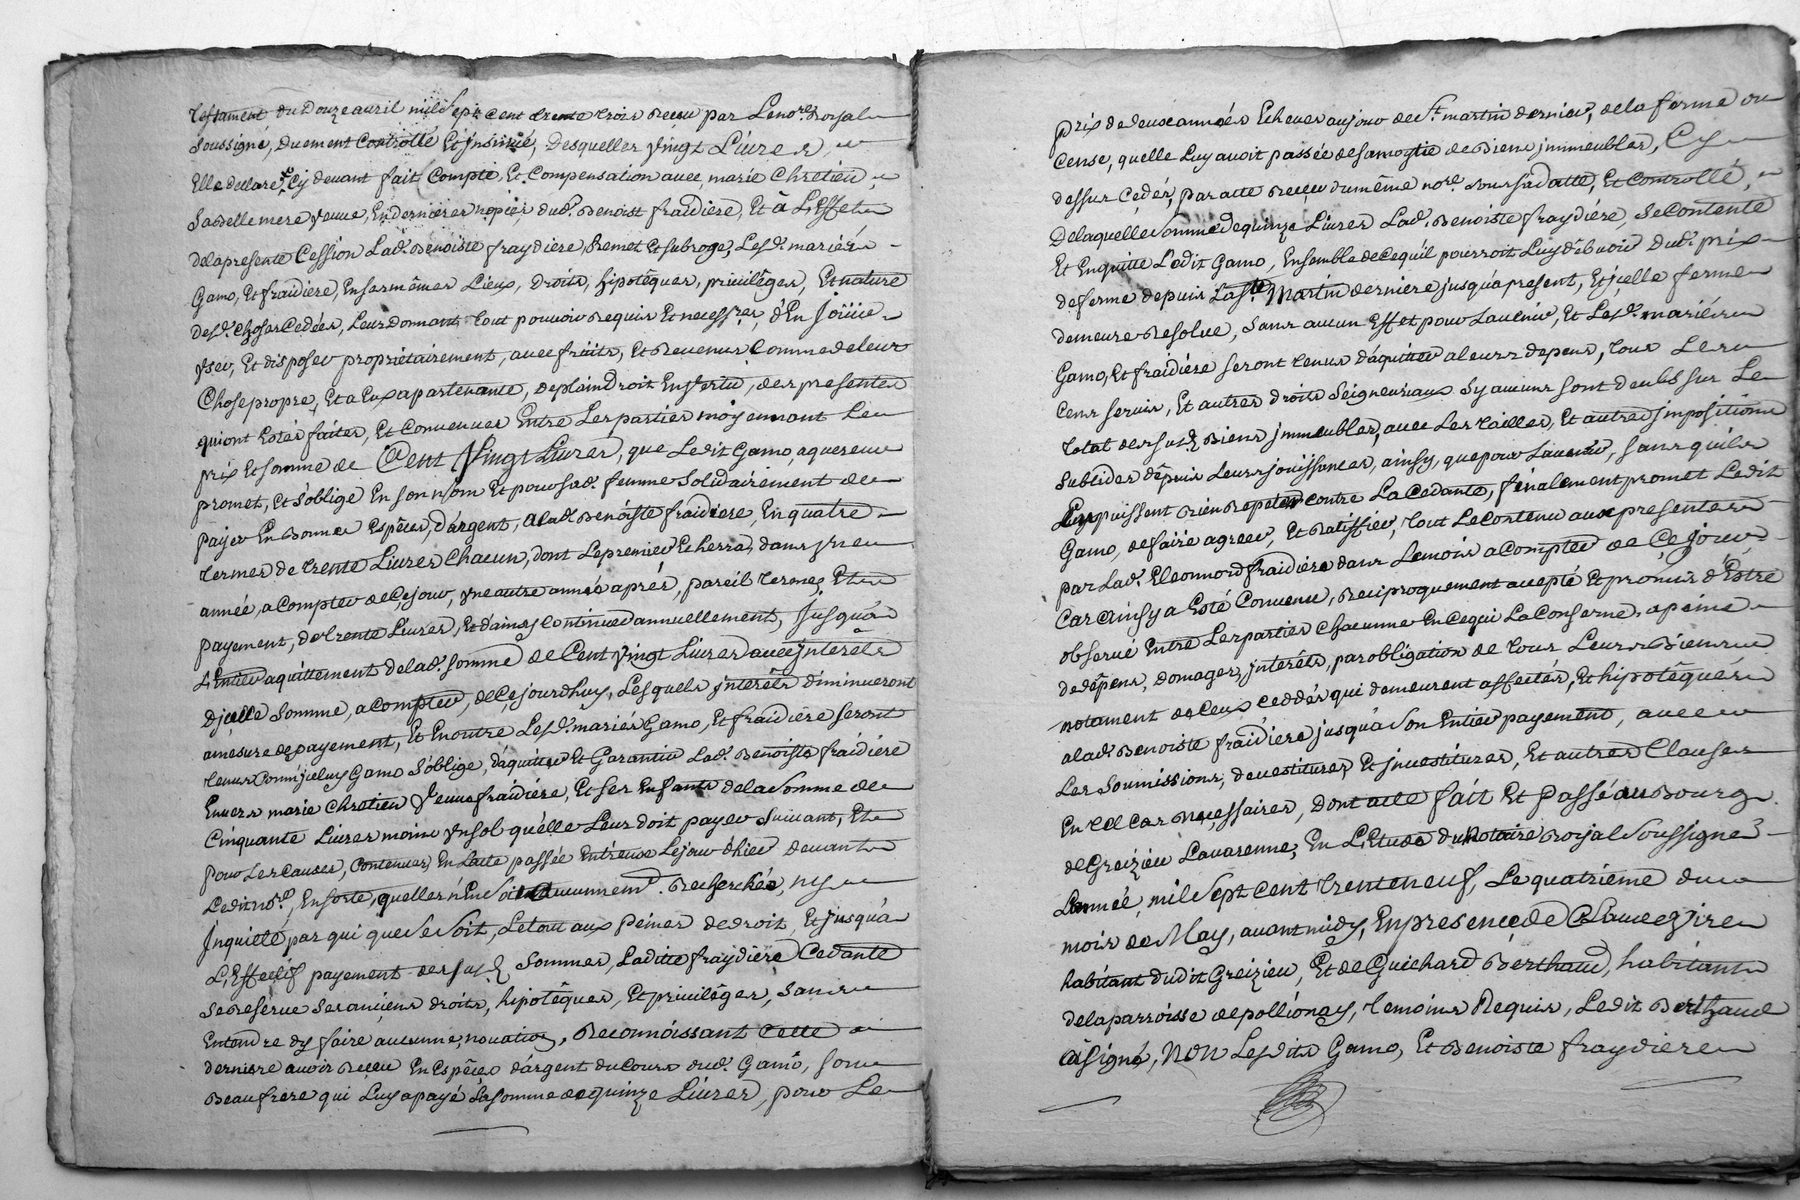 testament du Douze auril mil sept cent trente trois Receu par Le nore. Royal
soussigné, Duement Controllé Et Jnsinué, Desquelles vingt Liures,
Elle declare Cy deuant fait Compte, Et Compensation auec marie Chretien,
sa belle mere veuue, En dernieres nopces dud. Benoist fraidiere, Et à L'Effet
de la presente Cession Lad. Benoiste fraydiere, Remet Et subroge, Lesd. mariés
Gamo, Et fraidiere, En ses mêmes Lieux, droits, hipotêques, priuilêges, Et nature
desd. choses Cedées, Leurs donnant tout pouuoir Requis Et necessres, d'En Joüir
vser, Et disposer propriétairement, auec fruits, Et Reuenus Comme de leur
Chose propre, Et a Eux apartenante, de plain droit En vertu, des presentes
qui ont Estés faites, Et Conuenues Entre Les parties moyennant Le
prix Et somme de Cent Vingt Liures, que Ledit Gamo, aquereur
promet, Et s'oblige En son nom Et pour sad. femme solidairement de
payer En Bonnes Espêces, d'argent, a lad. Benoiste fraidiere, En quatre
termes de trente Liures Chacun, dont Le premier Echerra, dans vne
année, a Compter de Ce jour, vne autre année aprés, pareil terme, Et
payement, de trente Liures, Et d'ainsy Continuer annuellement, Jusqu'a
L'Entier aquittement de lad. somme de Cent vingt Liures auec Jnterêts
D'jcelle somme, a Compter, de Ce jourdhuy, Lesquels jnterêts diminueront
amesure de payement, Et En outre Lesd. mariés Gamo, Et fraidiere seront
tenus Comm' jceluy Gamo s'oblige, d'aquitter Et Garantir Lad. Benoiste fraidiere
Enuers marie Chretien veuue fraidiere, Et ses Enfants de la somme de
Cinquante Liures moins vn sol qu'elle Leur doit payer suiuant, Et
pour Les Causes, Contenues, En L'acte passée Entr'eux Le jour d'hier deuant
Ledit nore, En sorte, qu'elles n'En soit aucunnemt. Recherchée, ny
Jnquieté par qui que se soit, Le tout aux peines de droit, Et jusqu'a
L'Effectif payement des susd. sommes, Laditte fraydiere Cedante
se Reserue ses anciens droits, hipotêques, Et priuilêges, sans
Entendre dy faire aucunne nouation, Reconnoissant Cette
derniere auoir Receu En Espêces d'argent du Cours dud. Gamo, son
Beaufrere qui Luy a payé La somme de quinze Liures, pour Le
prix de deux années Echeues au jour de st. martin dernier, de la ferme ou
Cense, quelle Luy auoit passée de sa moytie de Biens jmmeubles, Cy
dessus Cedés, par acte Receu du même nore. sous sa datte, Et Controllé,
De laquelle somme de quinze Liures Lad. Benoiste fraydiére, se Contente
Et En quitte Ledit Gamo, Ensemble de Ce qu'il pourroit Luy deuoir dud. prix
de ferme depuis La st. Martin derniere jusqu'a present, Et jcelle ferme
demeure Resolue, sans aucun Effet pour Lauenir, Et Lesd. mariés
Gamo, Et fraidiere seront tenus d'aquitter a leurs depens, tous Les
Cens seruis, Et autres droits Seigneuriaux sy aucuns sont deubs sur Le
total des susd. Biens jmmeubles, auec Les tailles, Et autres jmpositions
subsides depuis Leurs jouissances, ainsy, que pour Lauenir, sans quils
puissent Rien Repeter contre La Cedante, finalement promet Ledit
Gamo, de faire agreer, Et Ratiffier, tout Le Contenu aux presentes
par Lad. Eleonnord fraidiere dans Le mois a Compter de Ce jour
Car Ainsy a Esté Conuenu, Reciproquement accepté Et promis d'Estre
obserué Entre Les parties Chacunne En Ce qui La Conserne, a peine
de dêpens, domages, jnterêts, par obligation de tous Leurs Biens
notament de Ceux Ceddés qui demeurent affectés, Et hipotêqués
a lad. Benoiste fraidiere jusqu'a son Entier payement, auec
Les soumissions, deuestitures, Et jnuestitures, Et autres Clauses
En tel Cas Necessaires, Dont acte fait Et Passé au Bourg
de Greizieu Lauarenne, En L'Etude du Notaire Royal soussigné
L'année, mil sept cent trente neuf, Le quatrième du
mois de May, auant midy, En presence de Claude Gire
habitant dudit Greizieu, Et de Guichard Berthaud, habitant
de la parroisse de pollionay, temoins Requis, Ledit Berthaud
a Signé, NON Lesdits Gamo, Et Benoiste fraydiere